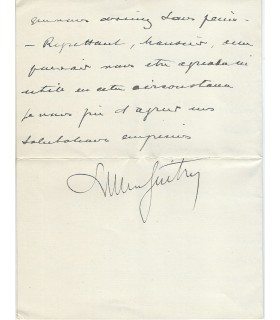 que vous désirez sans peine.
— Regrettant, Monsieur, de ne
pouvoir vous être agréable ni
utile en cette circonstance
je vous prie d'agréer mes
salutations empressées
Lucien Guitry